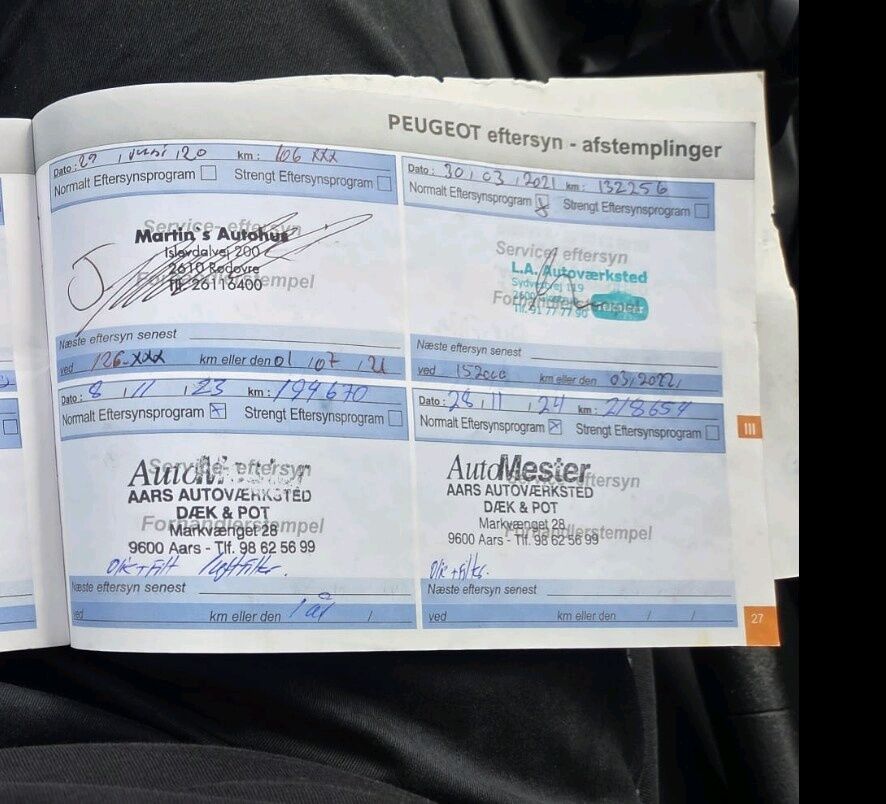 PEUGEOT eftersyn - afstemplinger
Dato: 29 / juni / 20 km: 106 xxx
Normalt Eftersynsprogram Strengt Eftersynsprogram
Service- eftersyn
Martin's Autohus
Islevdalvej 200
2610 Rødovre
Tlf. 26116400
Forhandlerstempel
Næste eftersyn senest
ved 126.xxx km eller den 01 / 07 / 21
Dato: 30 / 03 / 2021 km: 132256
Normalt Eftersynsprogram Strengt Eftersynsprogram
Service- eftersyn
L.A. Autoværksted
119
Tlf. 91 77 77 90
Næste eftersyn senest
ved km eller den 03/2022/
Dato: 8 / 11 / 23 km: 194670
Normalt Eftersynsprogram x Strengt Eftersynsprogram
Service- eftersyn
AutoMester
AARS AUTOVÆRKSTED
DÆK & POT
Forhandlerstempel
Markvænget 28
9600 Aars - Tlf. 98 62 56 99
Olie + Filt luftfilter.
Næste eftersyn senest
ved km eller den 1 år /
Dato: 28 / 11 / 24 km: 218654
Normalt Eftersynsprogram x Strengt Eftersynsprogram
Service- eftersyn
AutoMester
AARS AUTOVÆRKSTED
DÆK & POT
Markvænget 28
Forhandlerstempel
9600 Aars - Tlf. 98 62 56 99
Olie + Filter.
Næste eftersyn senest
ved km eller den / /
III
27